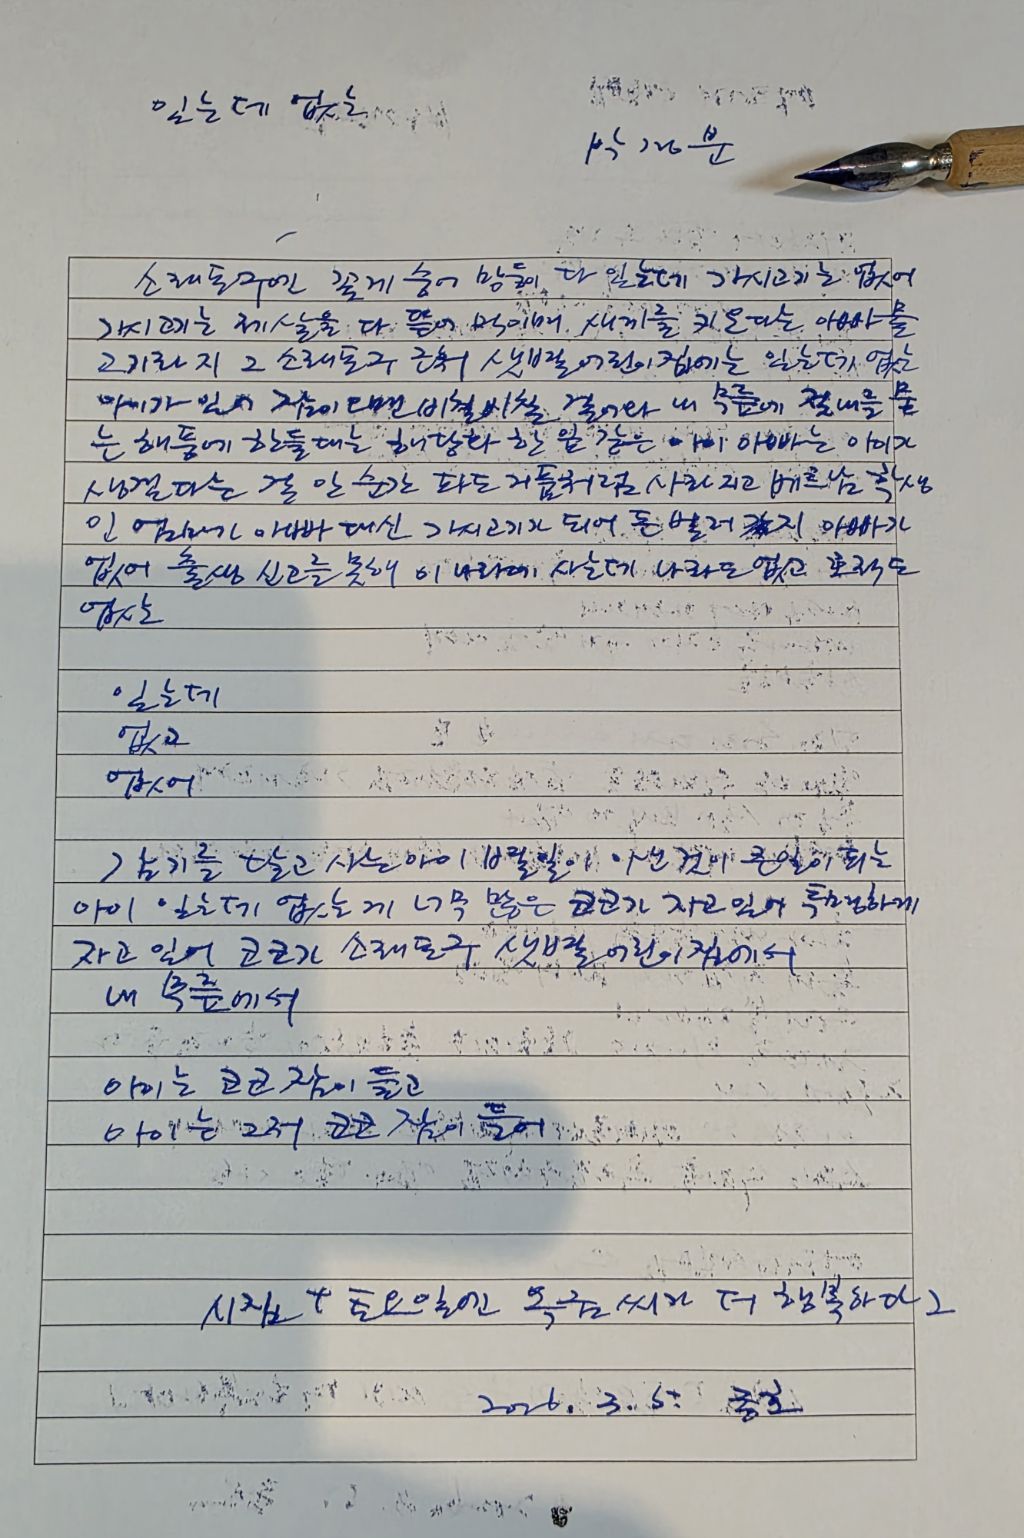 있는데 없는
박재분
소래포구엔 꽃게 숭어 망둥이 다 있는데 가시고기는 없어
가시고기는 제 살을 다 뜯어 먹이며 새끼를 키운다는 아빠 물
고기라지 그 소래포구 근처 샛별어린이집에는 있는데 없는
아이가 있어 잠이 오면 비칠비칠 걸어와 내 무릎에 침내를 묻
는 해풍에 한들대는 해당화 한 잎 같은 아이 아빠는 아이가
생겼다는 걸 안 순간 파도 거품처럼 사라지고 베트남 학생
인 엄마가 아빠 대신 가시고기가 되어 돈 벌러 갔지 아빠가
없어 출생 신고를 못해 이 나라에 사는데 나라도 없고 호적도
없는
있는데
없고
없어
감기를 달고 사는 아이 별일이 아닌 것이 큰일이 되는
아이 있는데 없는 게 너무 많은 코코가 자고 있어 투명하게
자고 있어 코코가 소래포구 샛별어린이집에서
내 무릎에서
아이는 코코 잠이 들고
아이는 그저 코코 잠이 들어
시집 + 토요일엔 옥춘씨가 더 행복하다
2026. 3. 5.